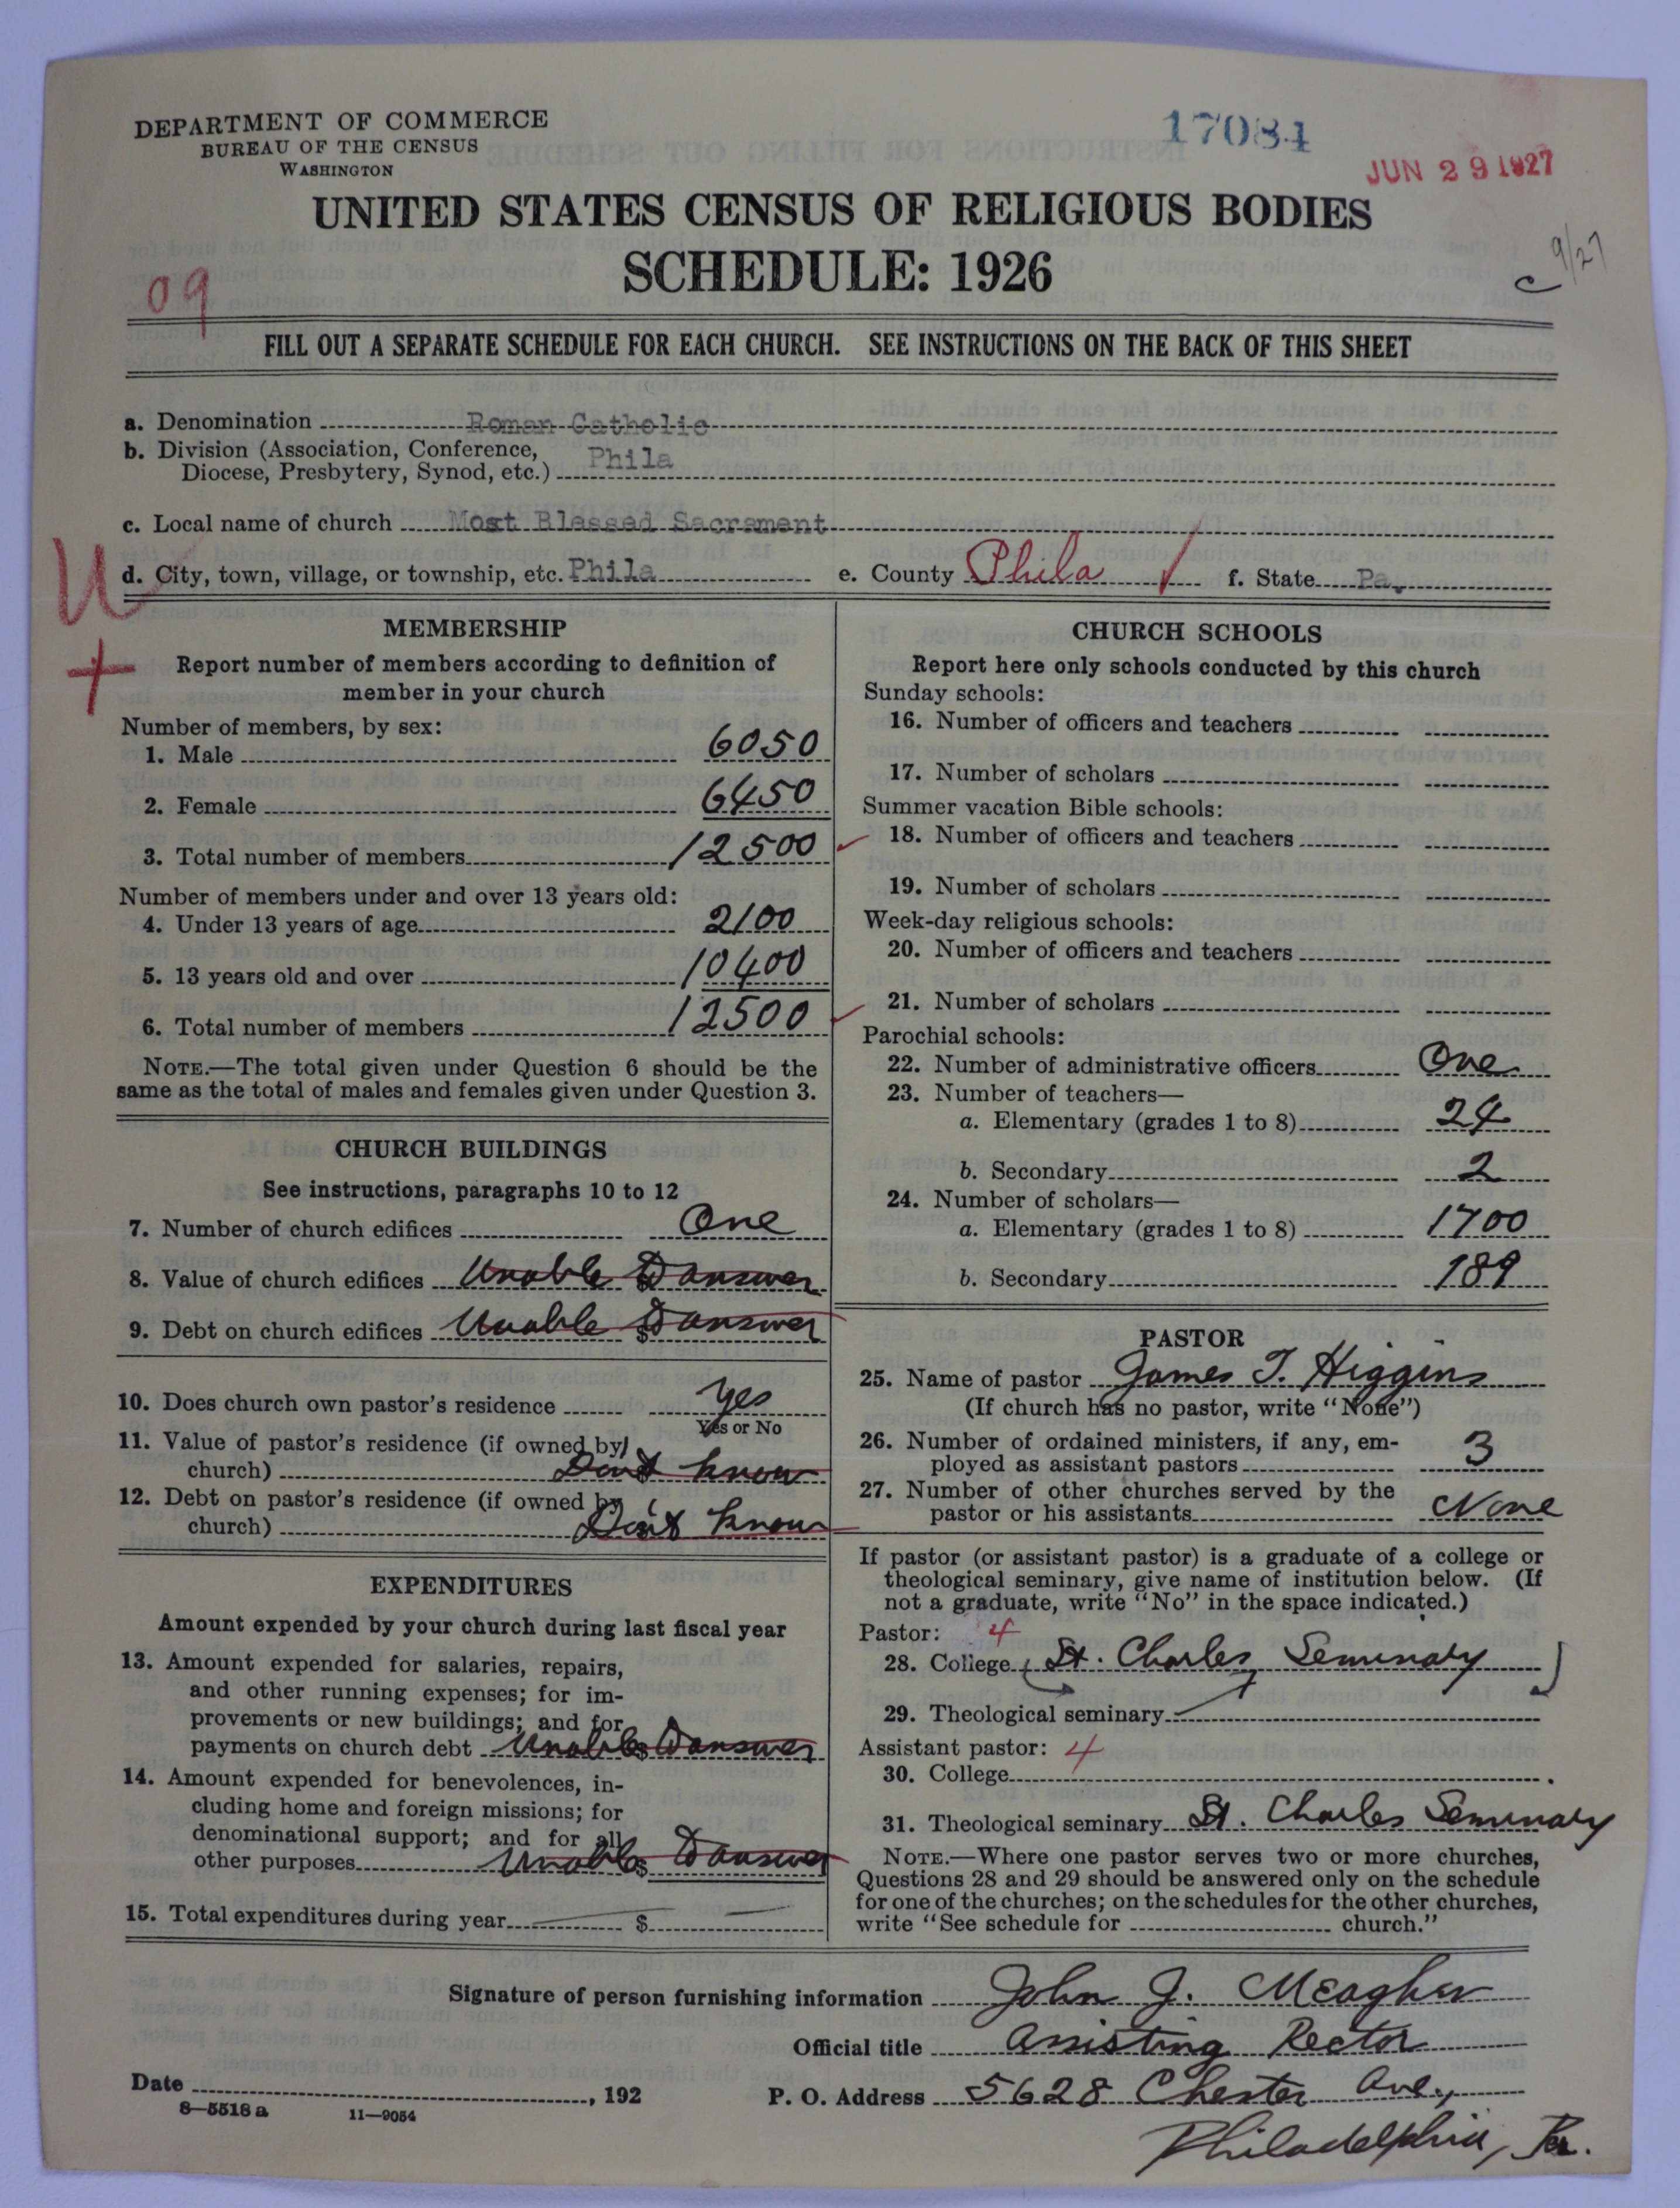 DEPARTMENT OF COMMERCE
BUREAU OF THE CENSUS
WASHINGTON
17084
JUN 29 1927
UNITED STATES CENSUS OF RELIGIOUS BODIES
SCHEDULE: 1926
9/27
C
09
FILL OUT A SEPARATE SCHEDULE FOR EACH CHURCH. SEE INSTRUCTIONS ON THE BACK OF THIS SHEET
a. Denomination Roman Catholic
b. Division (Association, Conference,
Diocese, Presbytery, Synod, etc.) Phila
c. Local name of church Most Blessed Sacrament
U
d. City, town, village, or township, etc. Phila e. County Phila f. State Pa.
+
MEMBERSHIP
Report number of members according to definition of
member in your church
Number of members, by sex:
1. Male 6050
2. Female 6450
3. Total number of members 12500
Number of members under and over 13 years old:
4. Under 13 years of age 2100
5. 13 years old and over 10400
6. Total number of members 12500
NOTE.—The total given under Question 6 should be the
same as the total of males and females given under Question 3.
CHURCH BUILDINGS
See instructions, paragraphs 10 to 12
7. Number of church edifices One
8. Value of church edifices $ Unable to answer
9. Debt on church edifices $ Unable to answer
10. Does church own pastor's residence Yes
Yes or No
11. Value of pastor's residence (if owned by
church) $ Don't know
12. Debt on pastor's residence (if owned by
church) $ Don't know
EXPENDITURES
Amount expended by your church during last fiscal year
13. Amount expended for salaries, repairs,
and other running expenses; for im-
provements or new buildings; and for
payments on church debt $ Unable to answer
14. Amount expended for benevolences, in-
cluding home and foreign missions; for
denominational support; and for all
other purposes $ Unable to answer
15. Total expenditures during year $
CHURCH SCHOOLS
Report here only schools conducted by this church
Sunday schools:
16. Number of officers and teachers
17. Number of scholars
Summer vacation Bible schools:
18. Number of officers and teachers
19. Number of scholars
Week-day religious schools:
20. Number of officers and teachers
21. Number of scholars
Parochial schools:
22. Number of administrative officers One
23. Number of teachers—
a. Elementary (grades 1 to 8) 24
b. Secondary 2
24. Number of scholars—
a. Elementary (grades 1 to 8) 1700
b. Secondary 189
PASTOR
25. Name of pastor James T. Higgins
(If church has no pastor, write "None")
26. Number of ordained ministers, if any, em-
ployed as assistant pastors 3
27. Number of other churches served by the
pastor or his assistants None
If pastor (or assistant pastor) is a graduate of a college or
theological seminary, give name of institution below. (If
not a graduate, write "No" in the space indicated.)
Pastor: 4
28. College (St. Charles Seminary)
29. Theological seminary
Assistant pastor: 4
30. College
31. Theological seminary St. Charles Seminary
NOTE.—Where one pastor serves two or more churches,
Questions 28 and 29 should be answered only on the schedule
for one of the churches; on the schedules for the other churches,
write "See schedule for church."
Signature of person furnishing information John J. Meagher
Official title Assisting Rector
Date , 192 P. O. Address 5628 Chester Ave.,
8—5518 a 11—9054
Philadelphia, Pa.